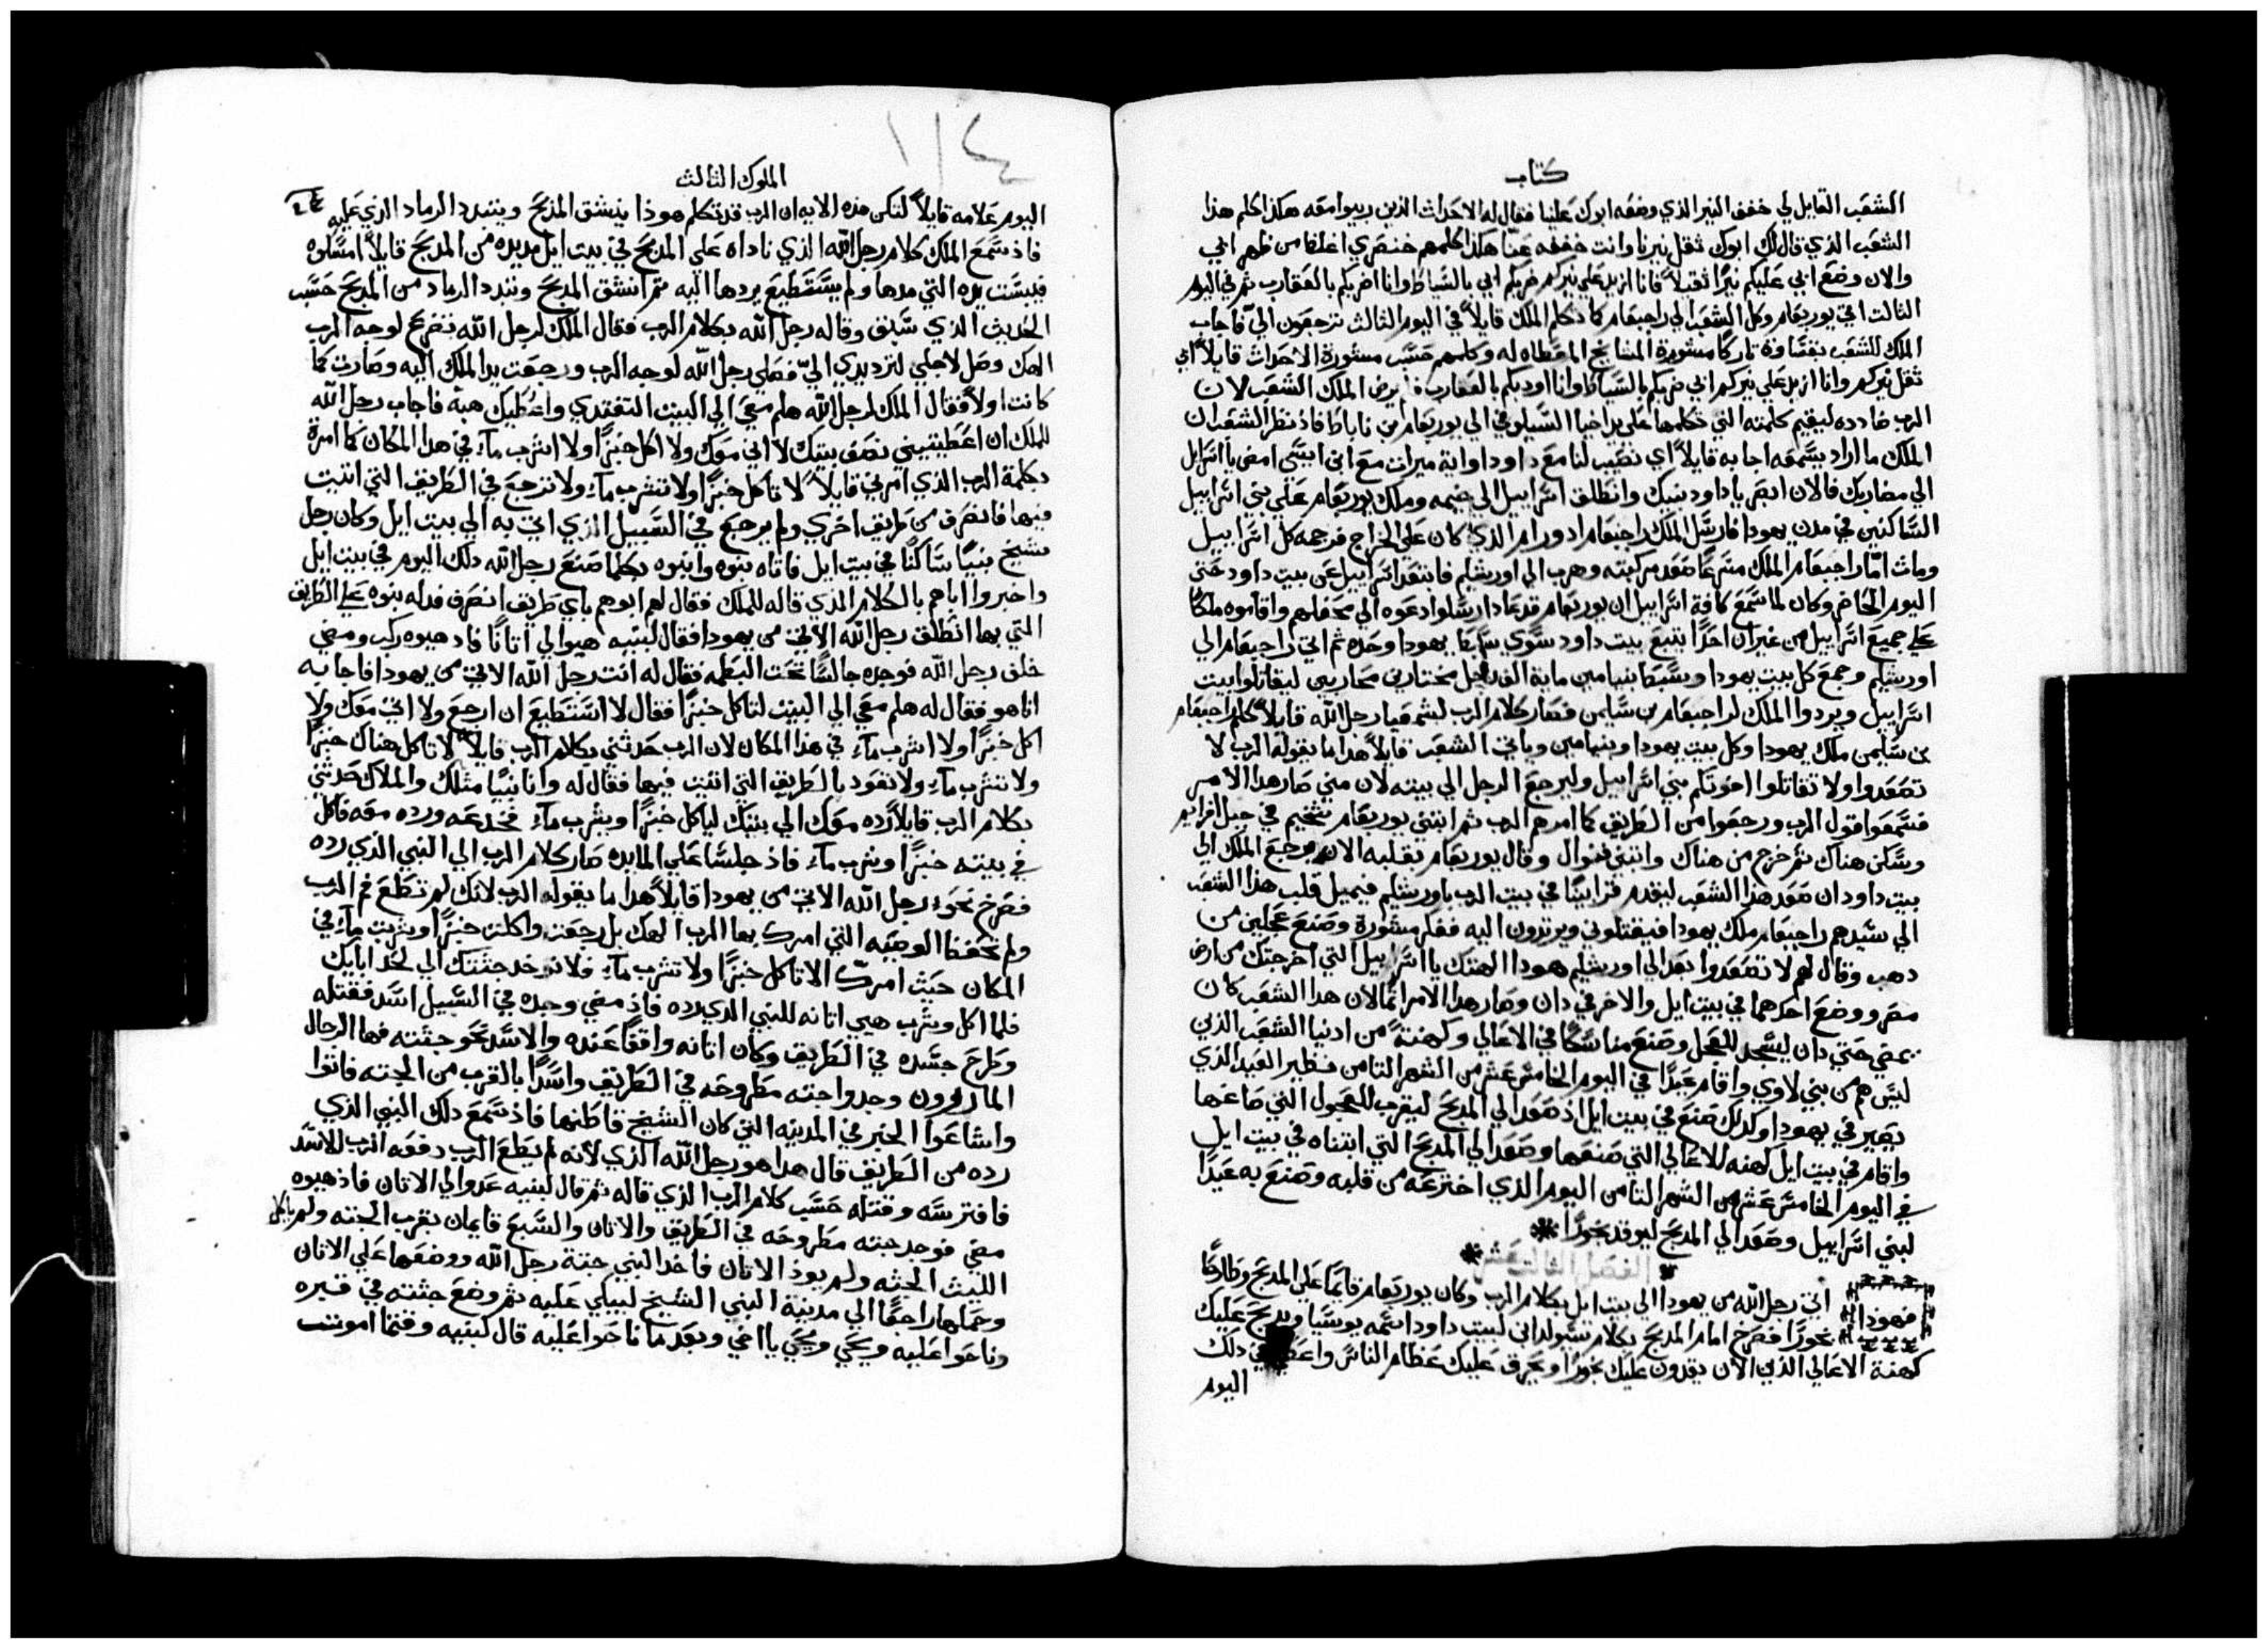 كتاب
الشعب القايل لي خفف النير الذي وضعه ابوك علينا فقال له الاحداث الذين ربيوا معه هكذا كلم هذا
الشعب الذي قال لك ابوك ثقل نيرنا وانت خففه عنّا هكذا كلمهم خنصري اغلظ من ظهر ابي
والان وضع ابي عليكم نيرًا ثقيلاً فانا ازيد علي نيركم ضربكم ابي بالسياط وانا اضربكم بالعقارب ثم في اليوم
الثالث اتي يوربعام وكل الشعب الي راجبعام كما تكلم الملك قايلاً في اليوم الثالث ترجعون اليّ فاجاب
الملك للشعب بقساوة تاركًا مشورة المشايخ المعطاه له وكلمهم حسب مشورة الاحداث قايلاً ابي
ثقل نيركم وانا ازيد علي نيركم ابي ضربكم بالسياط وانا اودبكم بالعقارب فلم يرض الملك الشعب لان
الرب ضادده ليقيم كلمته التي تكلمها علي يد اخيا السيلوني الي يوربعام ابن ناباط فاذ نظر الشعب ان
الملك ما اراد يسمعه اجابه قايلاً اي نصيب لنا مع داود او اية ميراث مع ابن ايسّى امض يا اسرايل
الي مضاربك فالان ابصر يا داود بيتك وانطلق اسراييل الي خيمه وملك يوربعام علي بني اسراييل
الساكنين في مدن يهودا فارسل الملك راجبعام ادورام الذي كان علي الخراج فرجمه كل اسراييل
ومات امّا راجبعام الملك مسرعًا صعد مركبته وهرب الي اورشليم فابتعد اسراييل عن بيت داود حتي
اليوم الحاضر وكان لما سمع كافة اسراييل ان يوربعام قد عاد ارسلوا دعوه الي محفلهم واقاموه ملكًا
علي جميع اسراييل من غير ان احدًا يتبع بيت داود سوي سبط يهودا وحده ثم اتي راجبعام الي
اورشليم وجمع كل بيت يهودا وسبط بنيامين ماية الف رجل مختارين محاربين ليقاتلوا بيت
اسراييل ويردوا الملك لراجبعام بن سليمن فصار كلام الرب لشمعيا رجل الله قايلاً كلم راجبعام
بن سليمن ملك يهودا وكل بيت يهودا وبنيامين وباقي الشعب قايلاً هذا ما يقوله الرب لا
تصعدوا ولا تقاتلوا اخوتكم بني اسراييل وليرجع الرجل الي بيته لان مني صار هذا الامر
فسمعوا قول الرب ورجعوا من الطريق كما امرهم الرب ثم ابتني يوربعام شخيم في جبل افرايم
وسكن هناك ثم خرج من هناك وابتني فنوال وقال يوربعام بقلبه الان يرجع الملك الي
بيت داود ان صعد هذا الشعب ليقدم قرابينًا في بيت الرب باورشليم فيميل قلب هذا الشعب
الي سيدهم راجبعام ملك يهودا فيقتلوني ويرتدون اليه ففكر مشورة وصنع عجلين من
دهب وقال لهم لا تصعدوا بعد الي اورشليم هودا الهتك يا اسراييل التي اخرجتك من ارض
مصر ووضع احدهما في بيت ايل والاخر في دان وصار هذا الامر اثمًا لان هدا الشعب كان
يمضي حتي دان ليسجد للعجل وصنع مناسكًا في الاعالي وكهنةً من ادنيا الشعب الذين
ليس هم من بني لاوي واقام عيدًا في اليوم الخامس عشر من الشهر الثامن نظير العيد الذي
يصير في يهودا وكدلك صنع في بيت ايل اذ صعد الي المدبح ليقرب للعجول التي صاغها
واقام في بيت ايل كهنه للاعالي التي صنعها وصعد الي المدبح التي ابتناه في بيت ايل
في اليوم الخامس عشر من الشهر الثامن اليوم الذي اخترعه من قلبه وصنع به عيدًا
لبني اسراييل وصعد الي المدبح ليوقد بخورًا
الفصل الثالث عشر
فهوذا اتي رجل الله من يهودا الي بيت ايل بكلام الرب وكان يوربعام قايمًا علي المدبح وطارحًا
بخورًا فصرخ امام المدبح بكلام سيولد ابن لبيت داود اسمه يوسيا ويدبح عليك
كهنة الاعالي الذين الان يقدون عليك بخورًا ويحرق عليك عظام الناس واعطي في دلك
اليوم
١١٤
الملوك الثالث
اليوم علامه قايلاً لتكن هذه الايه ان الرب قد تكلم هوذا ينشق المذبح ويتبدد الرماد الذي عليه
فاذ سمع الملك كلام رجل الله الذي ناداه علي المدبح في بيت ايل مد يده من المدبح قايلاً امسكوه
فيبست يده التي مدها ولم يستطيع يردها اليه ثم انشق المدبح وتبدد الرماد من المدبح حسب
الحديث الذي سبق وقاله رجل الله بكلام الرب فقال الملك لرجل الله تضرع لوجه الرب
الهك وصل لاجلي لترد يدي اليّ فصلي رجل الله لوجه الرب ورجعت يد الملك اليه وصارت كما
كانت اولاً فقال الملك لرجل الله هلم معي الي البيت لتتغدي واعطيك هبة فاجاب رجل الله
للملك ان اعطيتيني نصف بيتك لا اتي معك ولا اكل خبزًا ولا اشرب مآء في هدا المكان كما امرة
بكلمة الرب الذي امرني قايلاً لا تاكل خبزًا ولا تشرب مآء ولا ترجع في الطريق التي اتيت
فيها فانصرف من طريق اخري ولم يرجع في السبيل الذي اتي به الي بيت ايل وكان رجل
شيخ نبيًا ساكنًا في بيت ايل فاتاه بنوه وانبوه بكلما صنع رجل الله دلك اليوم في بيت ايل
واخبروا اباهم بالكلام الذي قاله للملك فقال لهم ابوهم باي طريق انصرف فدله بنوه علي الطريق
التي بها انطلق رجل الله الاتي من يهودا فقال لبنيه هيوا لي اتانًا فاد هيوه ركب ومضي
خلف رجل الله فوجده جالسًا تحت البطمه فقال له انت رجل الله الاتي من يهودا فاجابه
انا هو فقال له هلم معي الي البيت لتاكل خبزًا فقال لا استطيع ان ارجع ولا اتي معك ولا
اكل خبزًا ولا اشرب مآء في هذا المكان لان الرب حدثني بكلام الرب قايلاً لا تاكل هناك خبزًا
ولا تشرب مآء ولا تعود بالطريق التي اتيت فيها فقال له وانا نبيًا مثلك والملاك حدثني
بكلام الرب قايلاً رده معك الي بيتك لياكل خبزًا ويشرب مآء فخدعه ورده معه فاكل
في بيته خبزًا وشرب مآء فاذ جلسا علي المايده صار كلام الرب الي النبي الذي رده
فصرخ نحو رجل الله الاتي من يهودا قايلاً هدا ما يقوله الرب لانك لم تطع فم الرب
ولم تحفظ الوصيه التي امرك بها الرب الهك بل رجعت واكلت خبزًا وشربت مآء في
المكان حيث امرك الا تاكل خبزًا ولا تشرب مآء فلا توخد جثتك الي لحد ابايك
فلما اكل وشرب هيي اتانه للنبي الدي رده فاذ مضي وجده في السبيل اسد فقتله
وطرح جسده في الطريق وكان اتانه واقفًا عنده والاسد نحو جثته فها الرجال
المارون وجدوا جثته مطروحه في الطريق واسدًا بالقرب من الجثه فاتوا
واشاعوا الخبر في المدينه التي كان الشيخ قاطنها فاذ سمع دلك النبي الذي
رده من الطريق قال هدا هو رجل الله الذي لانه لم يطع الرب دفعه الرب للاسد
فافترسه وقتله حسب كلام الرب الذي قاله ثم قال لبنيه عدوا لي الاتان فاذ هيوه
مضي فوجد جثته مطروحه في الطريق والاتان والسبع قايمان بقرب الجثه ولم ياكل
الليث الجثه ولم يوذ الاتان فاخد النبي جثة رجل الله ووضعها علي الاتان
وحملها راجعًا الي مدينة النبي الشيخ ليبكي عليه ثم وضع جثته في قبره
وناحوا عليه ويحي ويحي يا اخي وبعد ما ناحوا عليه قال لبنيه وقتما اموت